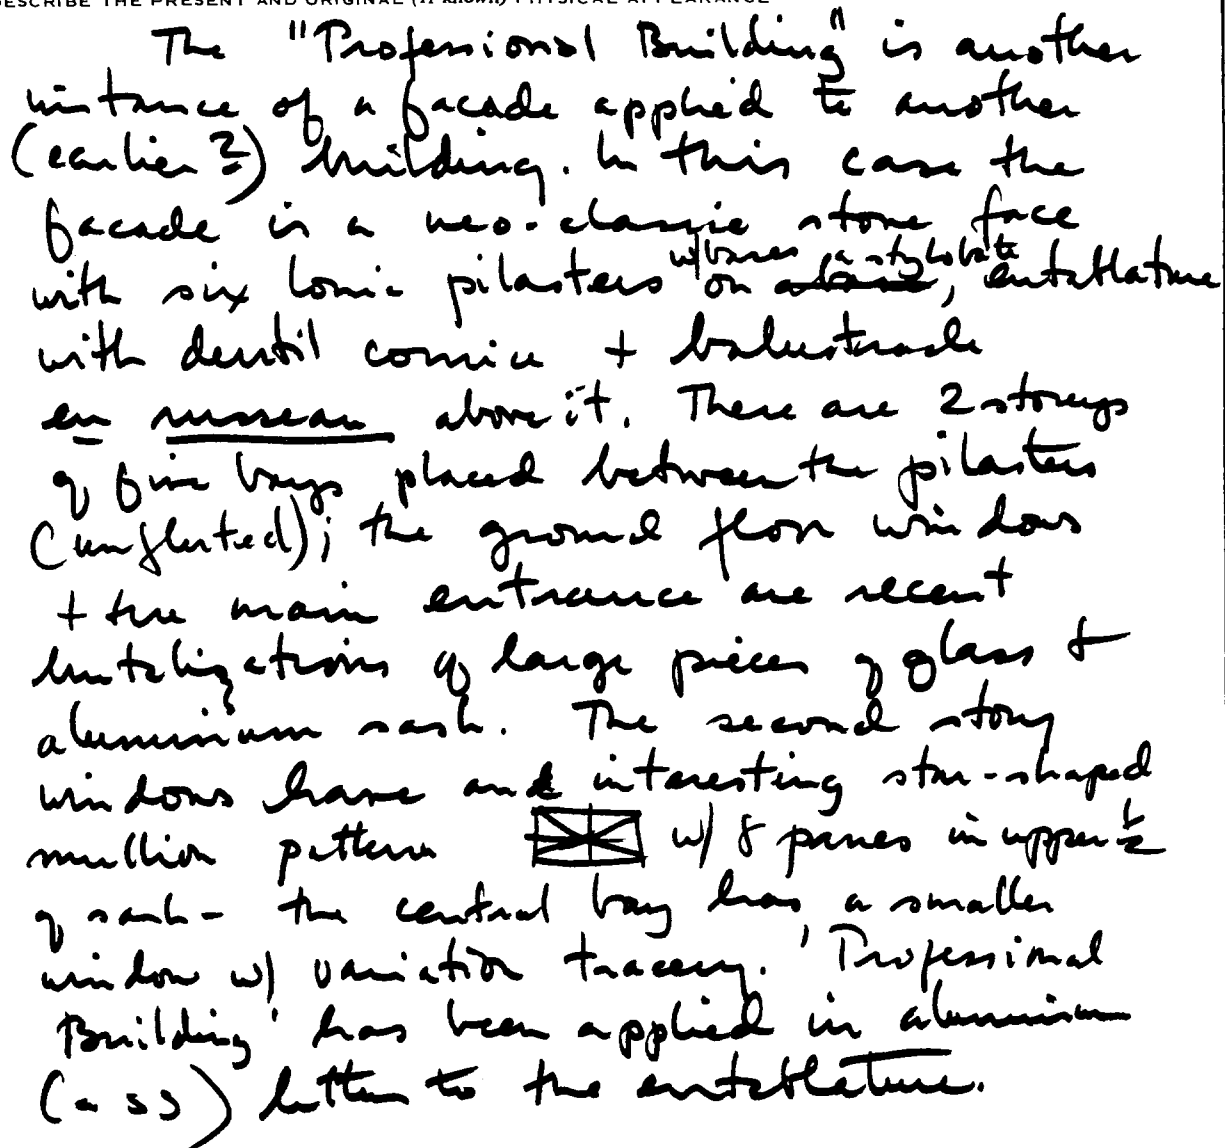 DESCRIBE THE PRESENT AND ORIGINAL (if known) PHYSICAL APPEARANCE
The "Professional Building" is another
instance of a facade applied to another
(earlier?) building. In this case the
facade is a neo-classic stone face
w/bases a stylobate
with six Ionic pilasters on a base, entablature
with dentil cornice + balustrade
en above it. There are 2 storeys
of five bays placed between the pilasters
(unfluted); the ground floor windows
+ the main entrance are recent
brutalizations of large pieces of glass +
aluminium sash. The second story
windows have an interesting star-shaped
mullion pattern w/ 8 panes in upper ½
of sash - the central bay has a smaller
window w/ variation tracery. 'Professional
Building' has been applied in aluminium
letters to the entablature.